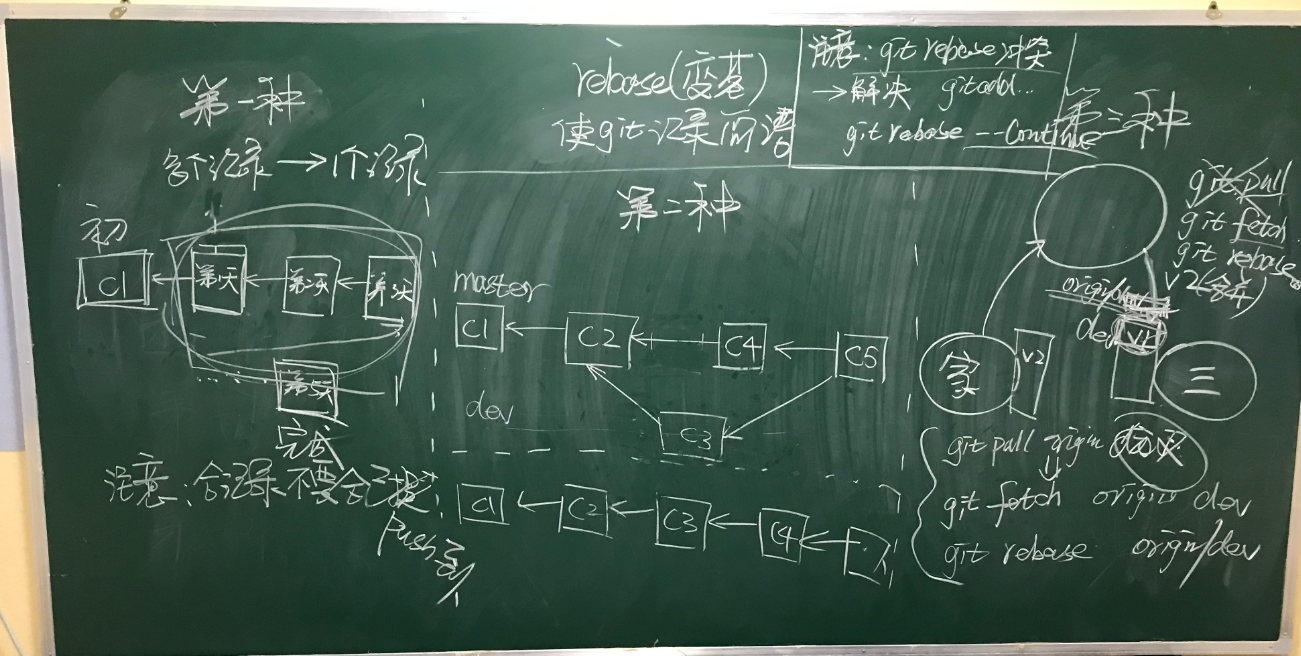 rebase(变基)
使git记录简洁
注意: git rebase 冲突
→解决 git add...
git rebase --continue
第一种
多个记录→1个记录
初
C1
第1天
第二天
第3天
第5天
完成
注意:合记录不要合已
push
第二种
master
C1
C2
C4
C5
dev
C3
C1
C2
C3
C4
第三种
git pull
git fetch
git rebase
V2(合并)
origin/dev
dev
V1
家
V2
三
git pull origin dev
git fetch origin dev
git rebase origin/dev